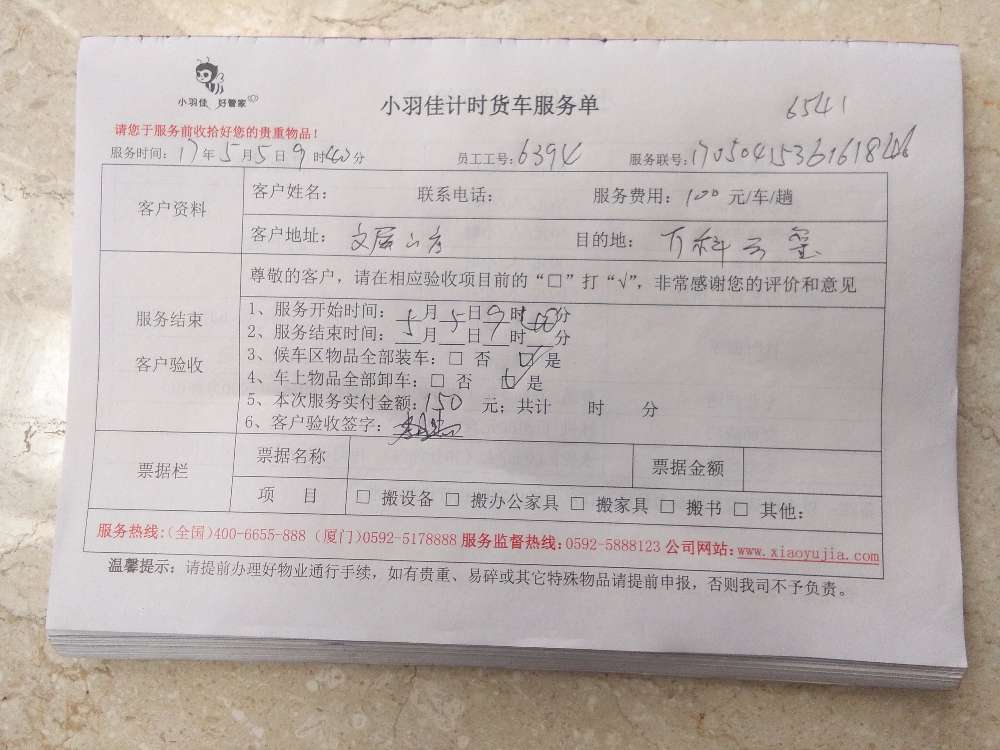 小羽佳 好管家
小羽佳计时货车服务单
6541
请您于服务前收拾好您的贵重物品！
服务时间：17年5月5日9时40分 员工工号：6394 服务联号：
客户资料
客户姓名： 联系电话： 服务费用：100 元/车/趟
客户地址：文屏山庄 目的地：万科云玺
服务结束
客户验收
尊敬的客户，请在相应验收项目前的“□”打“√”，非常感谢您的评价和意见
1、服务开始时间：5月5日9时40分
2、服务结束时间：5月__日__时__分
3、候车区物品全部装车：□ 否 ☑ 是
4、车上物品全部卸车：□ 否 ☑ 是
5、本次服务实付金额：150 元；共计 时 分
6、客户验收签字：
票据栏
票据名称 票据金额
项 目 □ 搬设备 □ 搬办公家具 □ 搬家具 □ 搬书 □ 其他：
服务热线：(全国)400-6655-888 (厦门)0592-5178888 服务监督热线：0592-5888123 公司网站：www.xiaoyujia.com
温馨提示：请提前办理好物业通行手续，如有贵重、易碎或其它特殊物品请提前申报，否则我司不予负责。